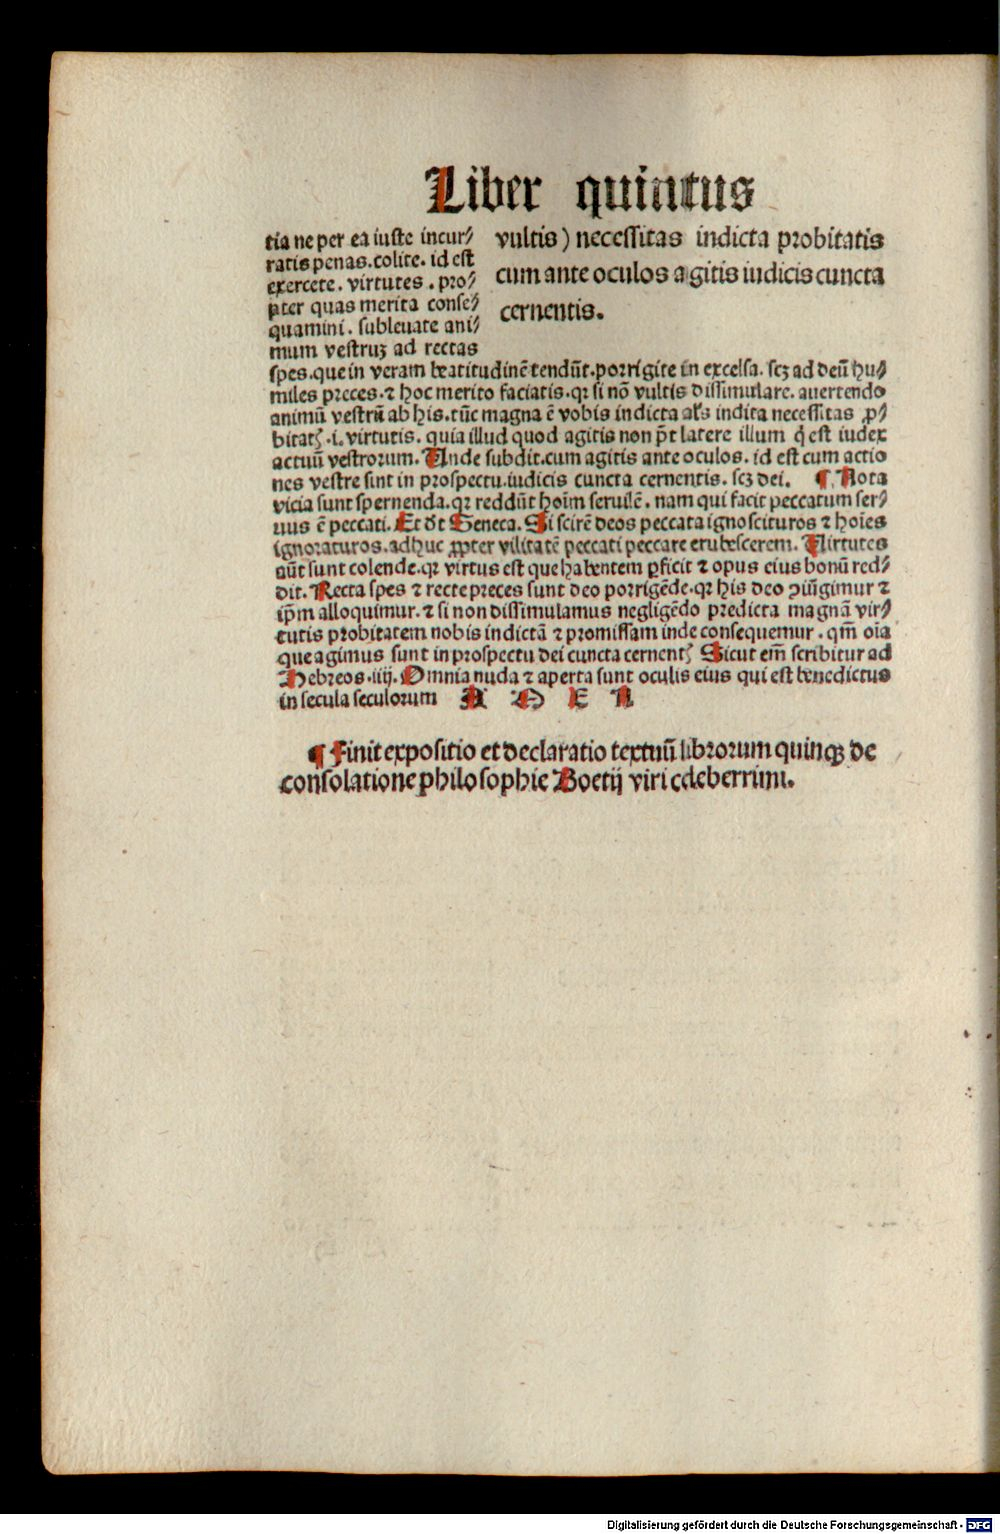 Liber quintus
vultis) necessitas indicta probitatis
cum ante oculos agitis iudicis cuncta
cernentis.
tia ne per ea iuste incur⸗
ratis penas. colite. id est
exercete. virtutes. pro⸗
pter quas merita conse⸗
quamini. subleuate ani⸗
mum vestruꝫ ad rectas
spes. que in veram beatitudinē tendūt. porrigite in excelsa. scꝫ ad deū hu⸗
miles preces. ⁊ hoc merito faciatis. qꝛ si nō vultis dissimulare. auertendo
animū vestrū ab his. tūc magna ē vobis indicta al's indita necessitas ꝓ⸗
bitatꝭ .i. virtutis. quia illud quod agitis non p̄t latere illum q̇ est iudex
actuū vestrorum. Unde subdit. cum agitis ante oculos. id est cum actio
nes vestre sunt in prospectu. iudicis cuncta cernentis. scꝫ dei. ¶ Nota
vicia sunt spernenda. qꝛ reddūt hoīm seruilē. nam qui facit peccatum ser⸗
uus ē peccati. Et d̄t Seneca. Si scirē deos peccata ignoscituros ⁊ hoīes
ignoraturos. adhuc ꝓpter vilitatē peccati peccare erubescerem. Virtutes
aūt sunt colende. qꝛ virtus est que habentem ꝑficit ⁊ opus eius bonū red⸗
dit. Recta spes ⁊ recte preces sunt deo porrigēde. qꝛ his deo ↄiūgimur ⁊
ip̄m alloquimur. ⁊ si non dissimulamus negligēdo predicta magnā vir⸗
tutis probitatem nobis indictā ⁊ promissam inde consequemur. qm̄ oīa
que agimus sunt in prospectu dei cuncta cernentꝭ Sicut em̄ scribitur ad
Hebreos .iiij. Omnia nuda ⁊ aperta sunt oculis eius qui est benedictus
in secula seculorum A M E N
¶ Finit expositio et declaratio textuū librorum quinqꝫ de
consolatione philosophie Boetij viri celeberrimi.
Digitalisierung gefördert durch die Deutsche Forschungsgemeinschaft - DFG